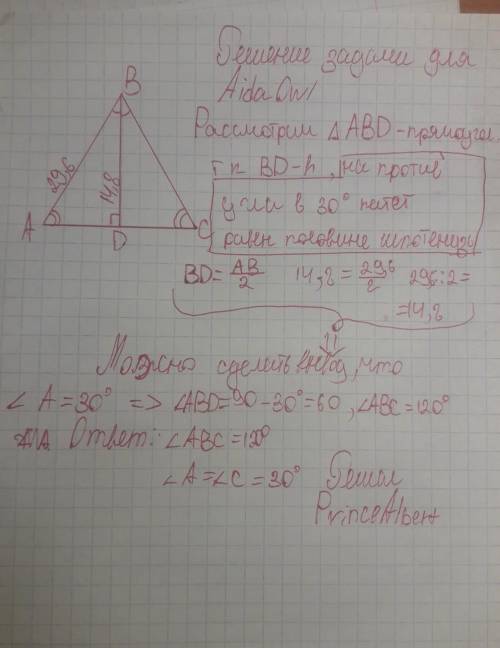 Решение задачи для
Aida Owl
B
Рассмотрим △ABD - прямоугол.
т к BD-h, на против
угла в 30° катет
равен половине гипотенузы
29,6
14,8
A
D
C
BD = AB/2 14,8 = 29,6/2 29,6:2=
=14,8
Можно сделать вывод, что
∠A = 30° => ∠ABD=90-30°=60, ∠ABC=120°
Ответ: ∠ABC = 120°
∠A = ∠C = 30° Решал
PrinceAlbert